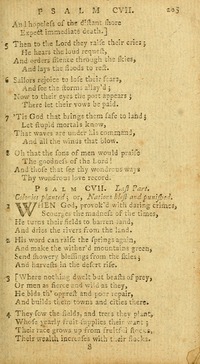 PSALM CVII. 205
And hopeless of the distant shore
Expect immediate death.]
5 Then to the Lord they raise their cries;
He hears the loud request,
And orders silence through the skies,
And lays the floods to rest.
6 Sailors rejoice to lose their fears,
And see the storms allay'd;
Now to their eyes the port appears;
There let their vows be paid.
7 'Tis God that brings them safe to land;
Let stupid mortals know,
That waves are under his command,
And all the winds that blow.
8 Oh that the sons of men would praise
The goodness of the Lord!
And those that see thy wondrous ways
Thy wondrous love record.
PSALM CVII. Last Part.
Colonies planted; or, Nations blest and punished.
WHEN God, provok'd with daring crimes,
Scourges the madness of the times,
He turns their fields to barren sand,
And dries the rivers from the land.
2 His word can raise the springs again,
And make the wither'd mountains green,
Send showery blessings from the skies;
And harvests in the desert rise.
3 [Where nothing dwelt but beasts of prey,
Or men as fierce and wild as they,
He bids th' opprest and poor repair,
And builds them towns and cities there.
4 They sow the fields, and trees they plant,
Whose yearly fruit supplies their want;
Their race grows up from fruitful stocks,
Their wealth increases with their flocks.
S